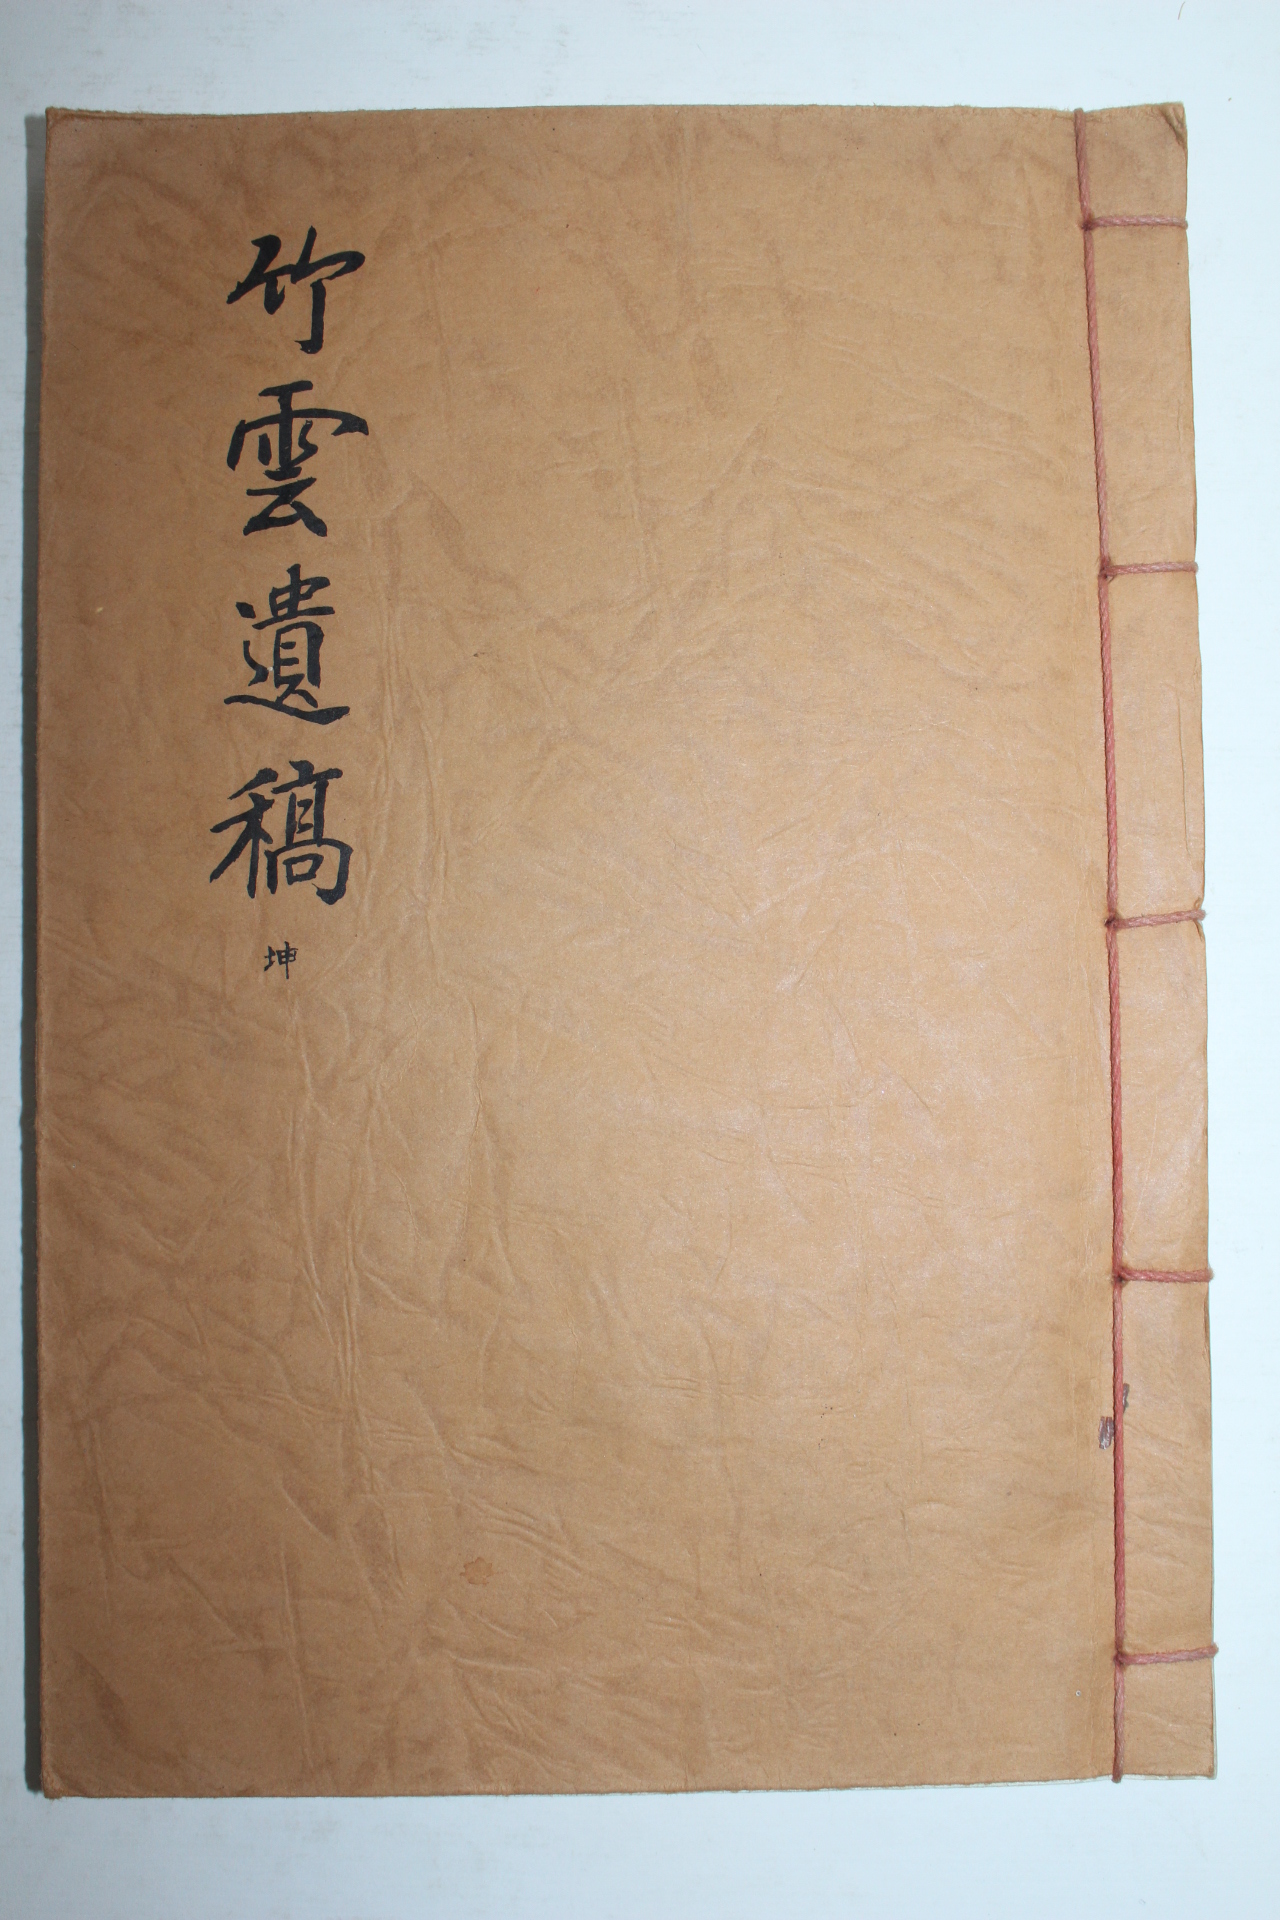 竹雲遺稿 坤